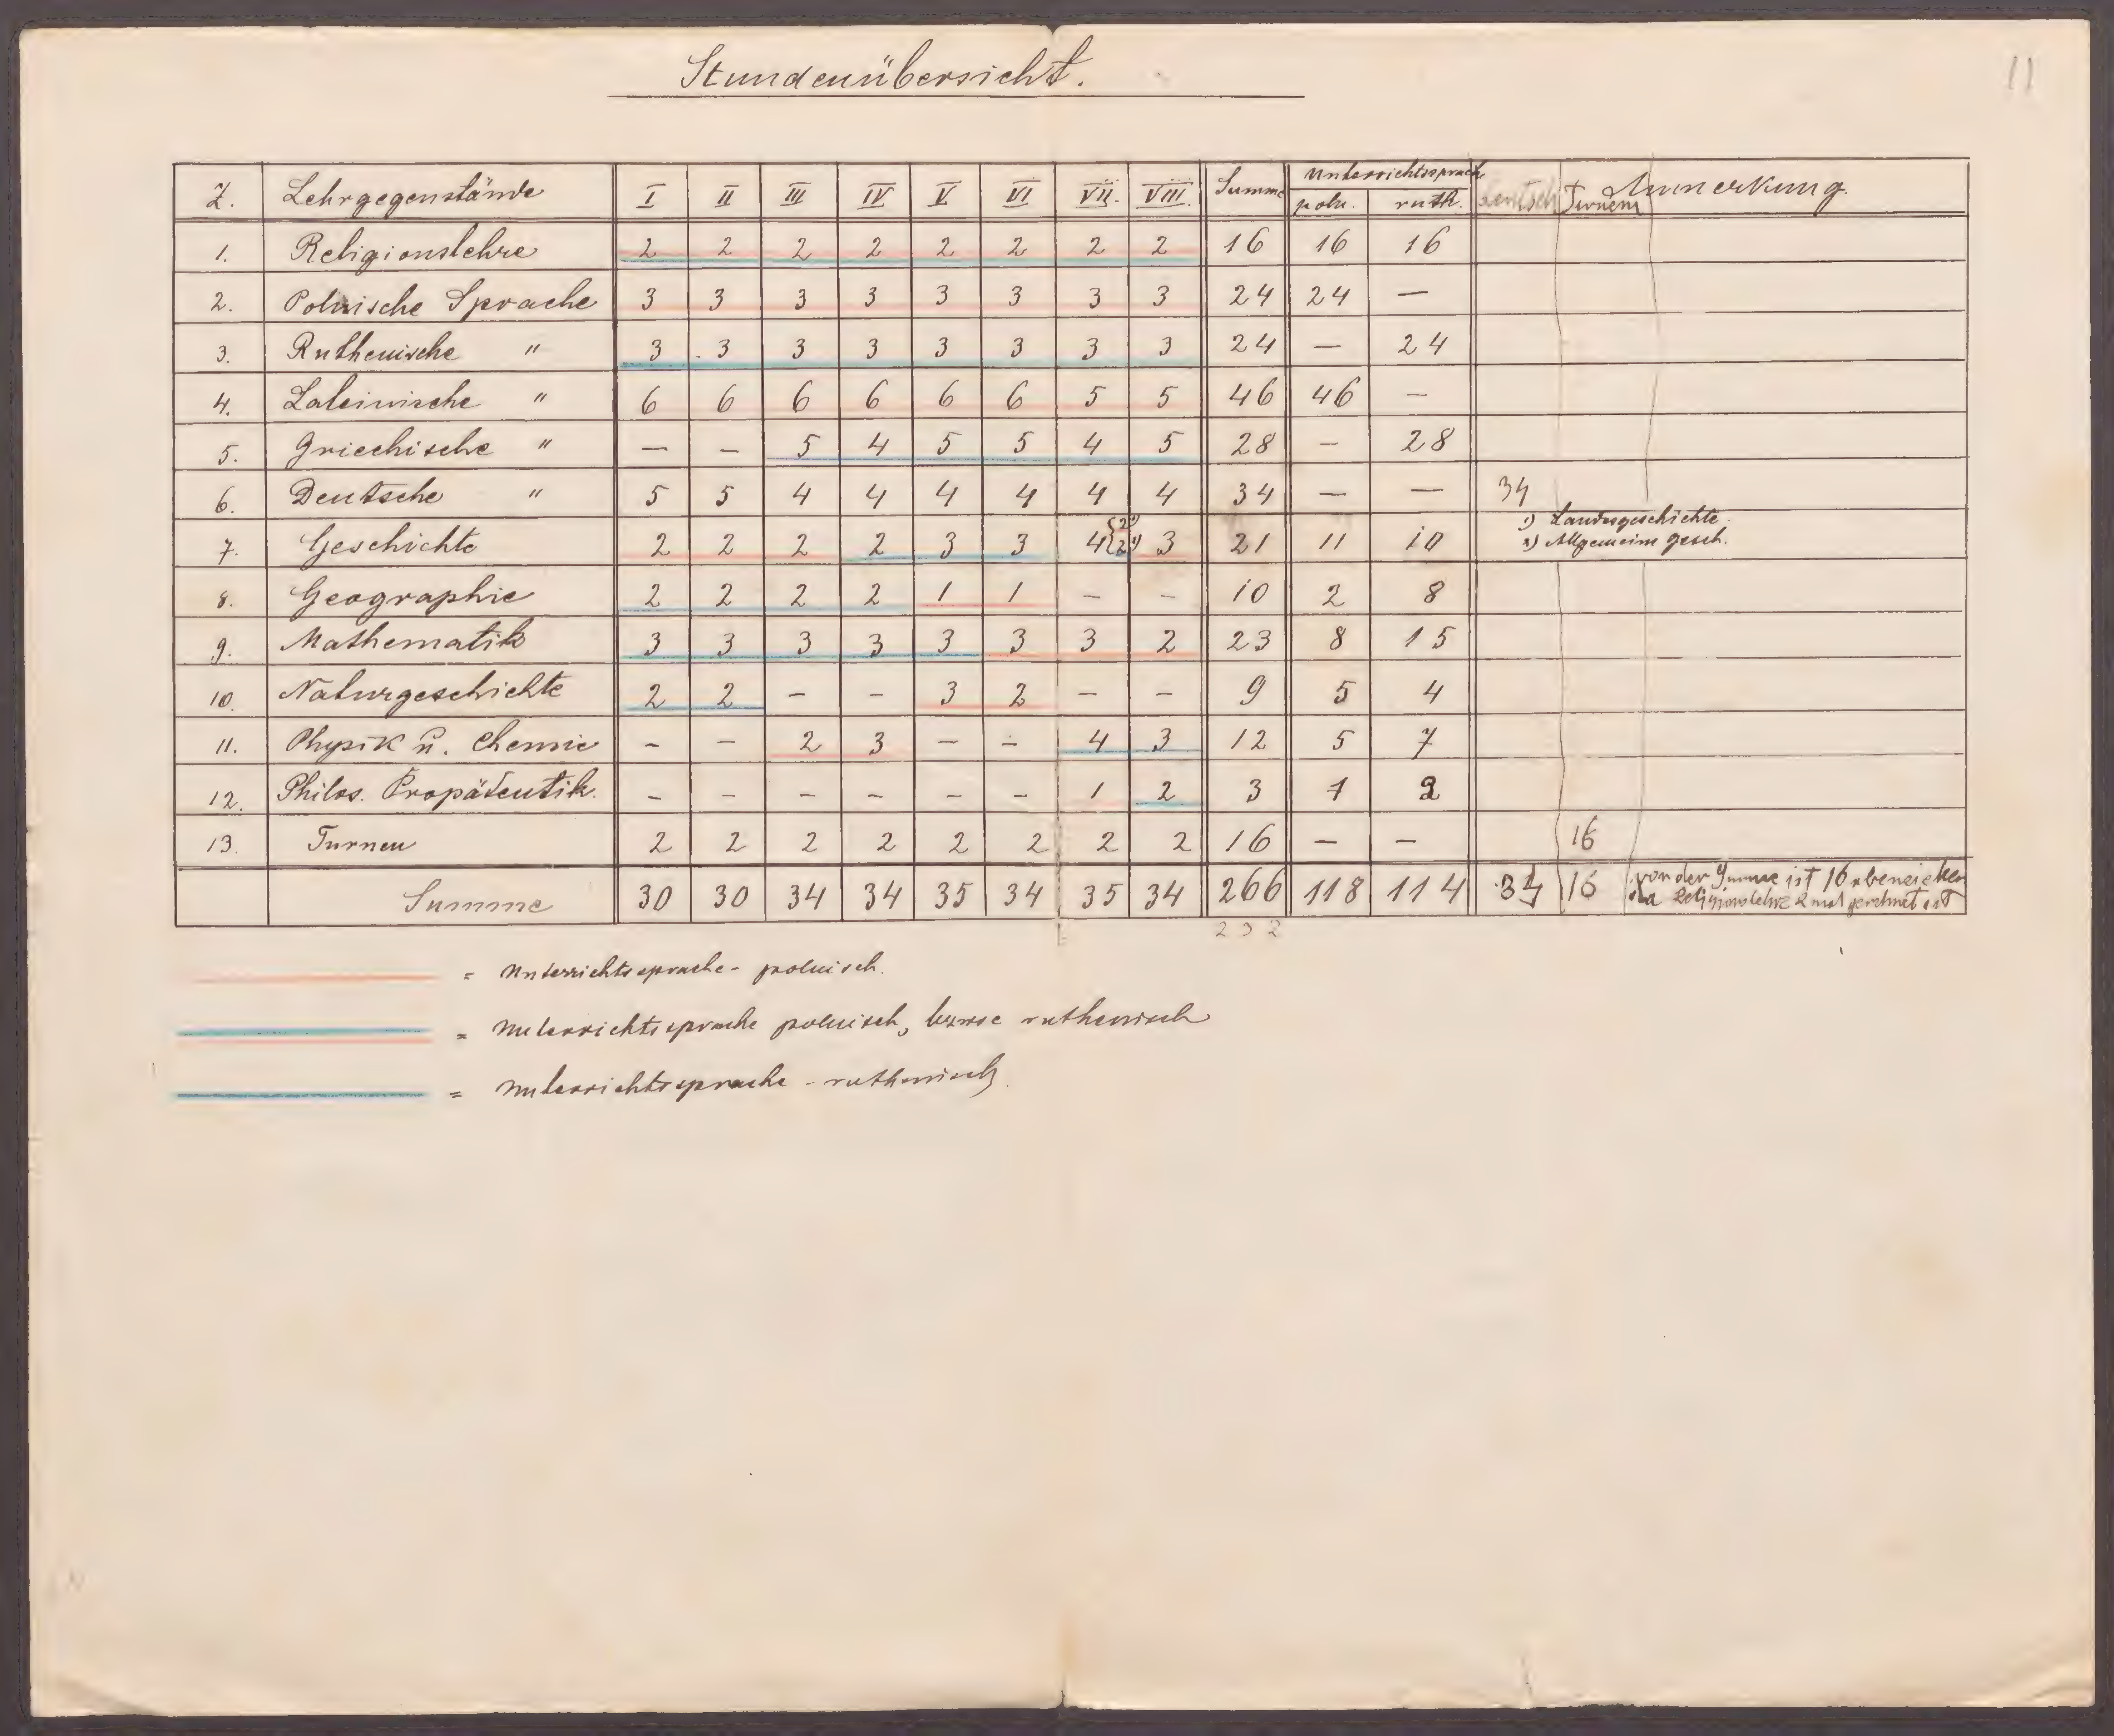 11
Stundenübersicht.
Z. Lehrgegenstände I II III IV V VI VII. VIII. Summe Unterrichtssprache poln. ruth. deutsch Turnen Anmerkung.
1. Religionslehre 2 2 2 2 2 2 2 2 16 16 16
2. Polnische Sprache 3 3 3 3 3 3 3 3 24 24 —
3. Ruthenische " 3 3 3 3 3 3 3 3 24 — 24
4. Lateinische " 6 6 6 6 6 6 5 5 46 46 —
5. Griechische " — — 5 4 5 5 4 5 28 — 28
6. Deutsche " 5 5 4 4 4 4 4 4 34 — — 34
7. Geschichte 2 2 2 2 3 3 4 {2 1) 2 2) 3 21 11 10 1) Landesgeschichte.
2) Allgemeine Gesch.
8. Geographie 2 2 2 2 1 1 – – 10 2 8
9. Mathematik 3 3 3 3 3 3 3 2 23 8 15
10. Naturgeschichte 2 2 – – 3 2 – – 9 5 4
11. Physik u. Chemie – – 2 3 – – 4 3 12 5 7
12. Philos. Propädeutik. – – – – – – 1 2 3 1 2
13. Turnen 2 2 2 2 2 2 2 2 16 — — 16
Summe 30 30 34 34 35 34 35 34 266 118 114 34 16 von der Summe ist 16 abzuziehen
da Religionslehre 2 mal gerechnet ist
232
= Unterrichtssprache - polnisch.
= Unterrichtssprache polnisch, bezwse ruthenisch
= Unterrichtssprache - ruthenisch.